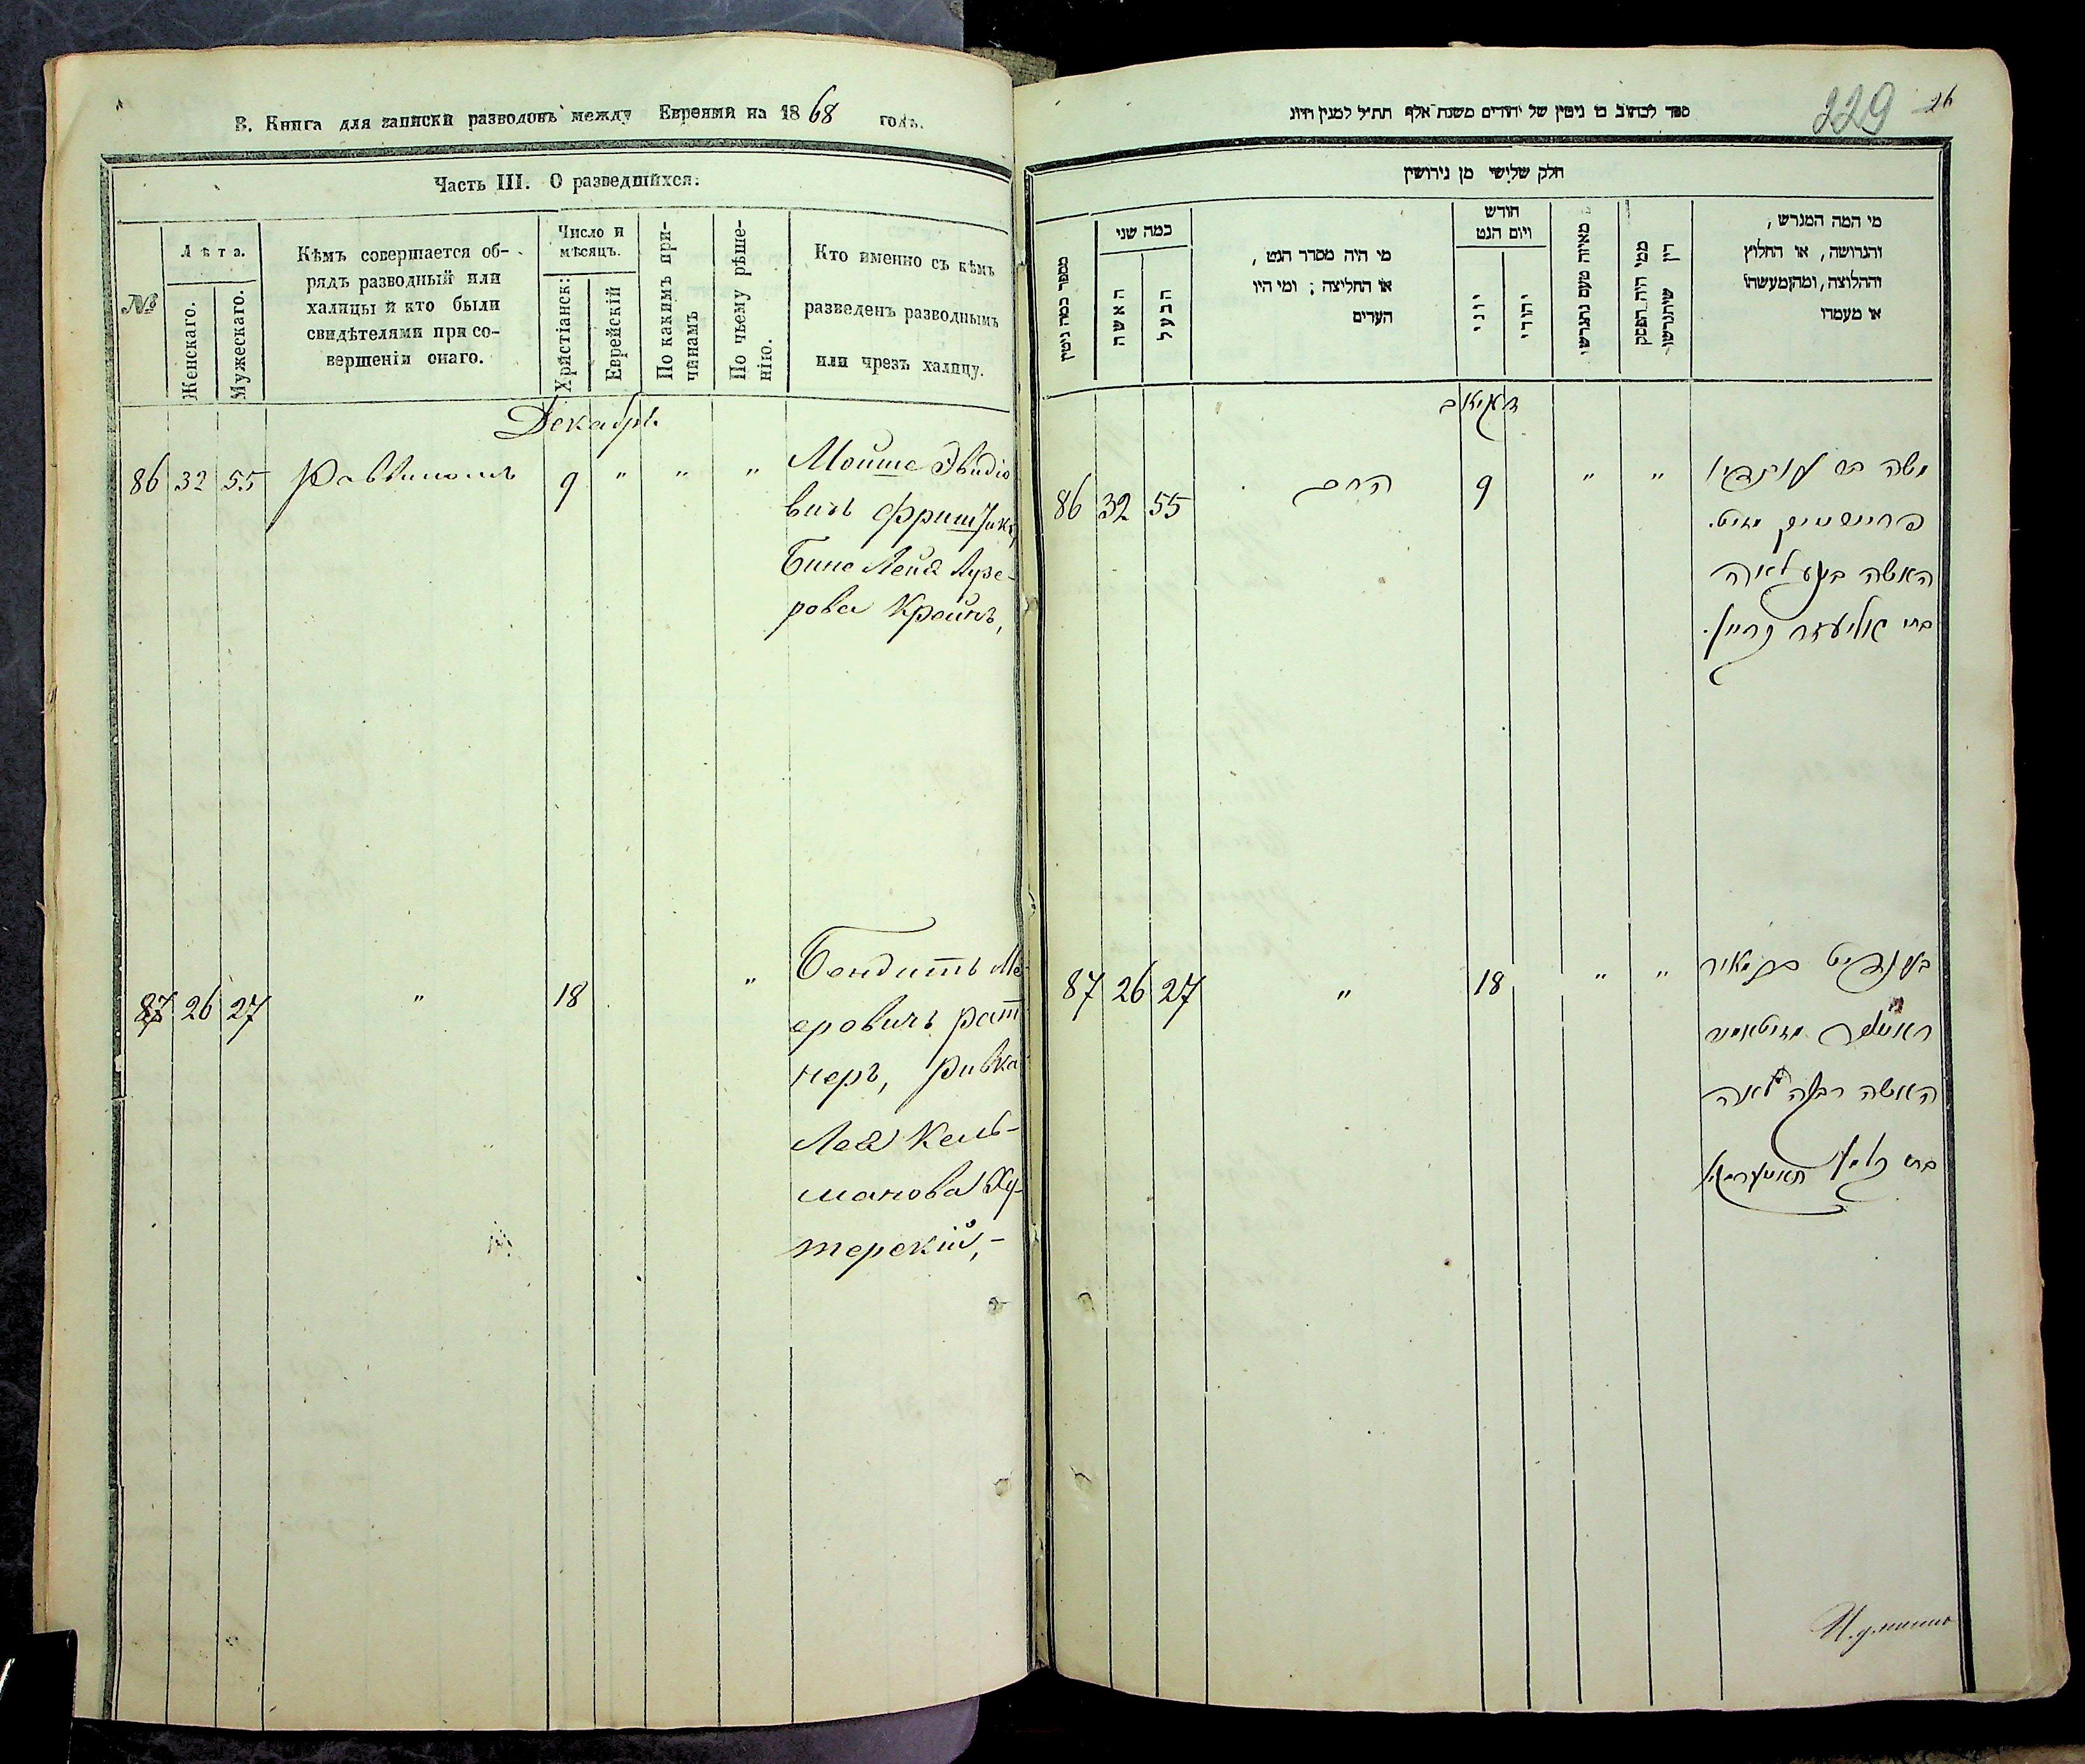 В. Книга для записки разводовъ между Евреями на 1868 годъ.
Часть III. О разведшихся.
№
Лѣта.
Женскаго.
Мужескаго.
Кѣмъ совершается об-
рядъ разводный или
халицы и кто были
свидѣтелями при со-
вершеніи онаго.
Число и
мѣсяцъ.
Христіанск:
Еврейскій
По какимъ при-
чинамъ
По чьему рѣше-
нію.
Кто именно съ кѣмъ
разведенъ разводнымъ
или чрезъ халицу.
Декабрь
86 32 55 Раввиномъ 9 " " "
Мойше Овидіо
вичъ Фриштикъ,
Бине Лея Лузе-
рова Крейнъ,
87 26 27 " 18 "
Бендитъ Ме-
еровичъ Рат
неръ, Ривка
Лея Кель-
манова Ху-
терскій,-
229
26
ספר לכתוב בו גיטין של יהודים משנת אלף תת״ל למנין
חלק שלישי מן גירושין
מספר כמה גיטין
כמה שני
האשה
הבעל
מי היה מסדר הגט,
או החליצה; ומי היו
העדים
חודש
ויום הגט
יוני
יהודי
מאיזה טעם נתגרשו
ממי היה הפסק
דין שיתגרשו
מי המה המגרש,
והגרושה, או החליץ
והחלוצה, ומהןמעשהו
או מעמדו
דעקאב
86 32 55 הרב 9 " "
משה בר
האשה בינע לאה
בת אליעזר קריין.
87 26 27 " 18 " "
בענדיט בר מאיר
ראטנער
האשה רבקה לאה
בת קלמן